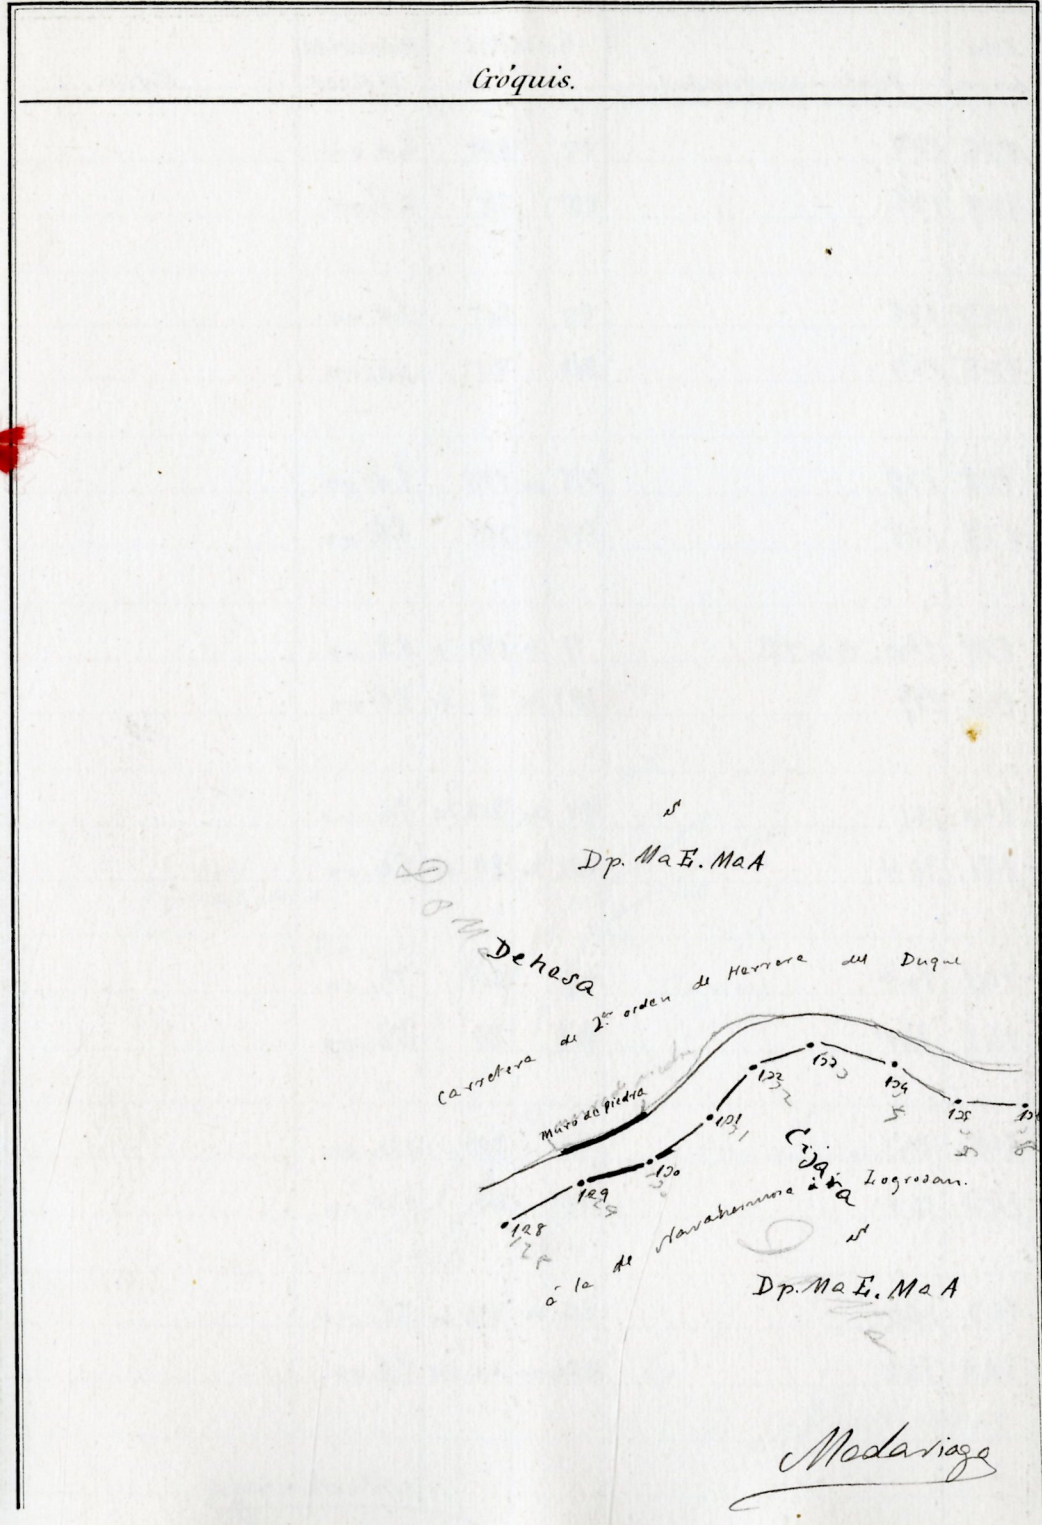 Cróquis.
Dp. Ma E. Ma A
Dehesa
Carretera de 2º orden de Herrera del Duque
Muro de piedra
128
129
130
131
132
133
134
135
Cijara
á la de Navahermosa á Logrosan.
Dp. Ma E. Ma A
Madariaga